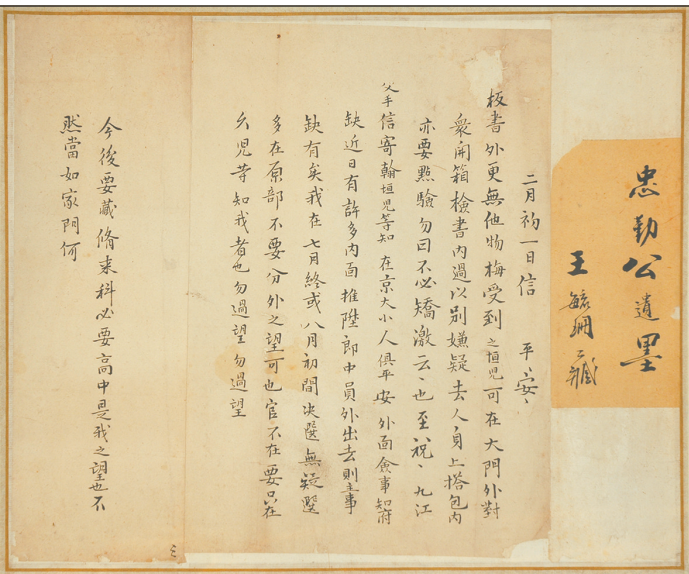 忠勤公遺墨
王毓珊藏
二月初一日信 平安
板書外更無他物梅受到之垣児可在大門外對
衆開箱檢書內過以別嫌疑去人身上搭包內
亦要點驗勿曰不必矯激云〻也至祝〻九江
父手信寄翰垣児等知 在京大小人俱平安 外面僉事知府
缺近日有許多內面推陞郎中員外出去則主事
缺有矣我在七月終或八月初間決選無疑墅
多在原部不要分外之望可也官不在要只在
久児等知我者也勿過望勿過望
今後要藏脩来科必要高中是我之望也不
然當如家門何